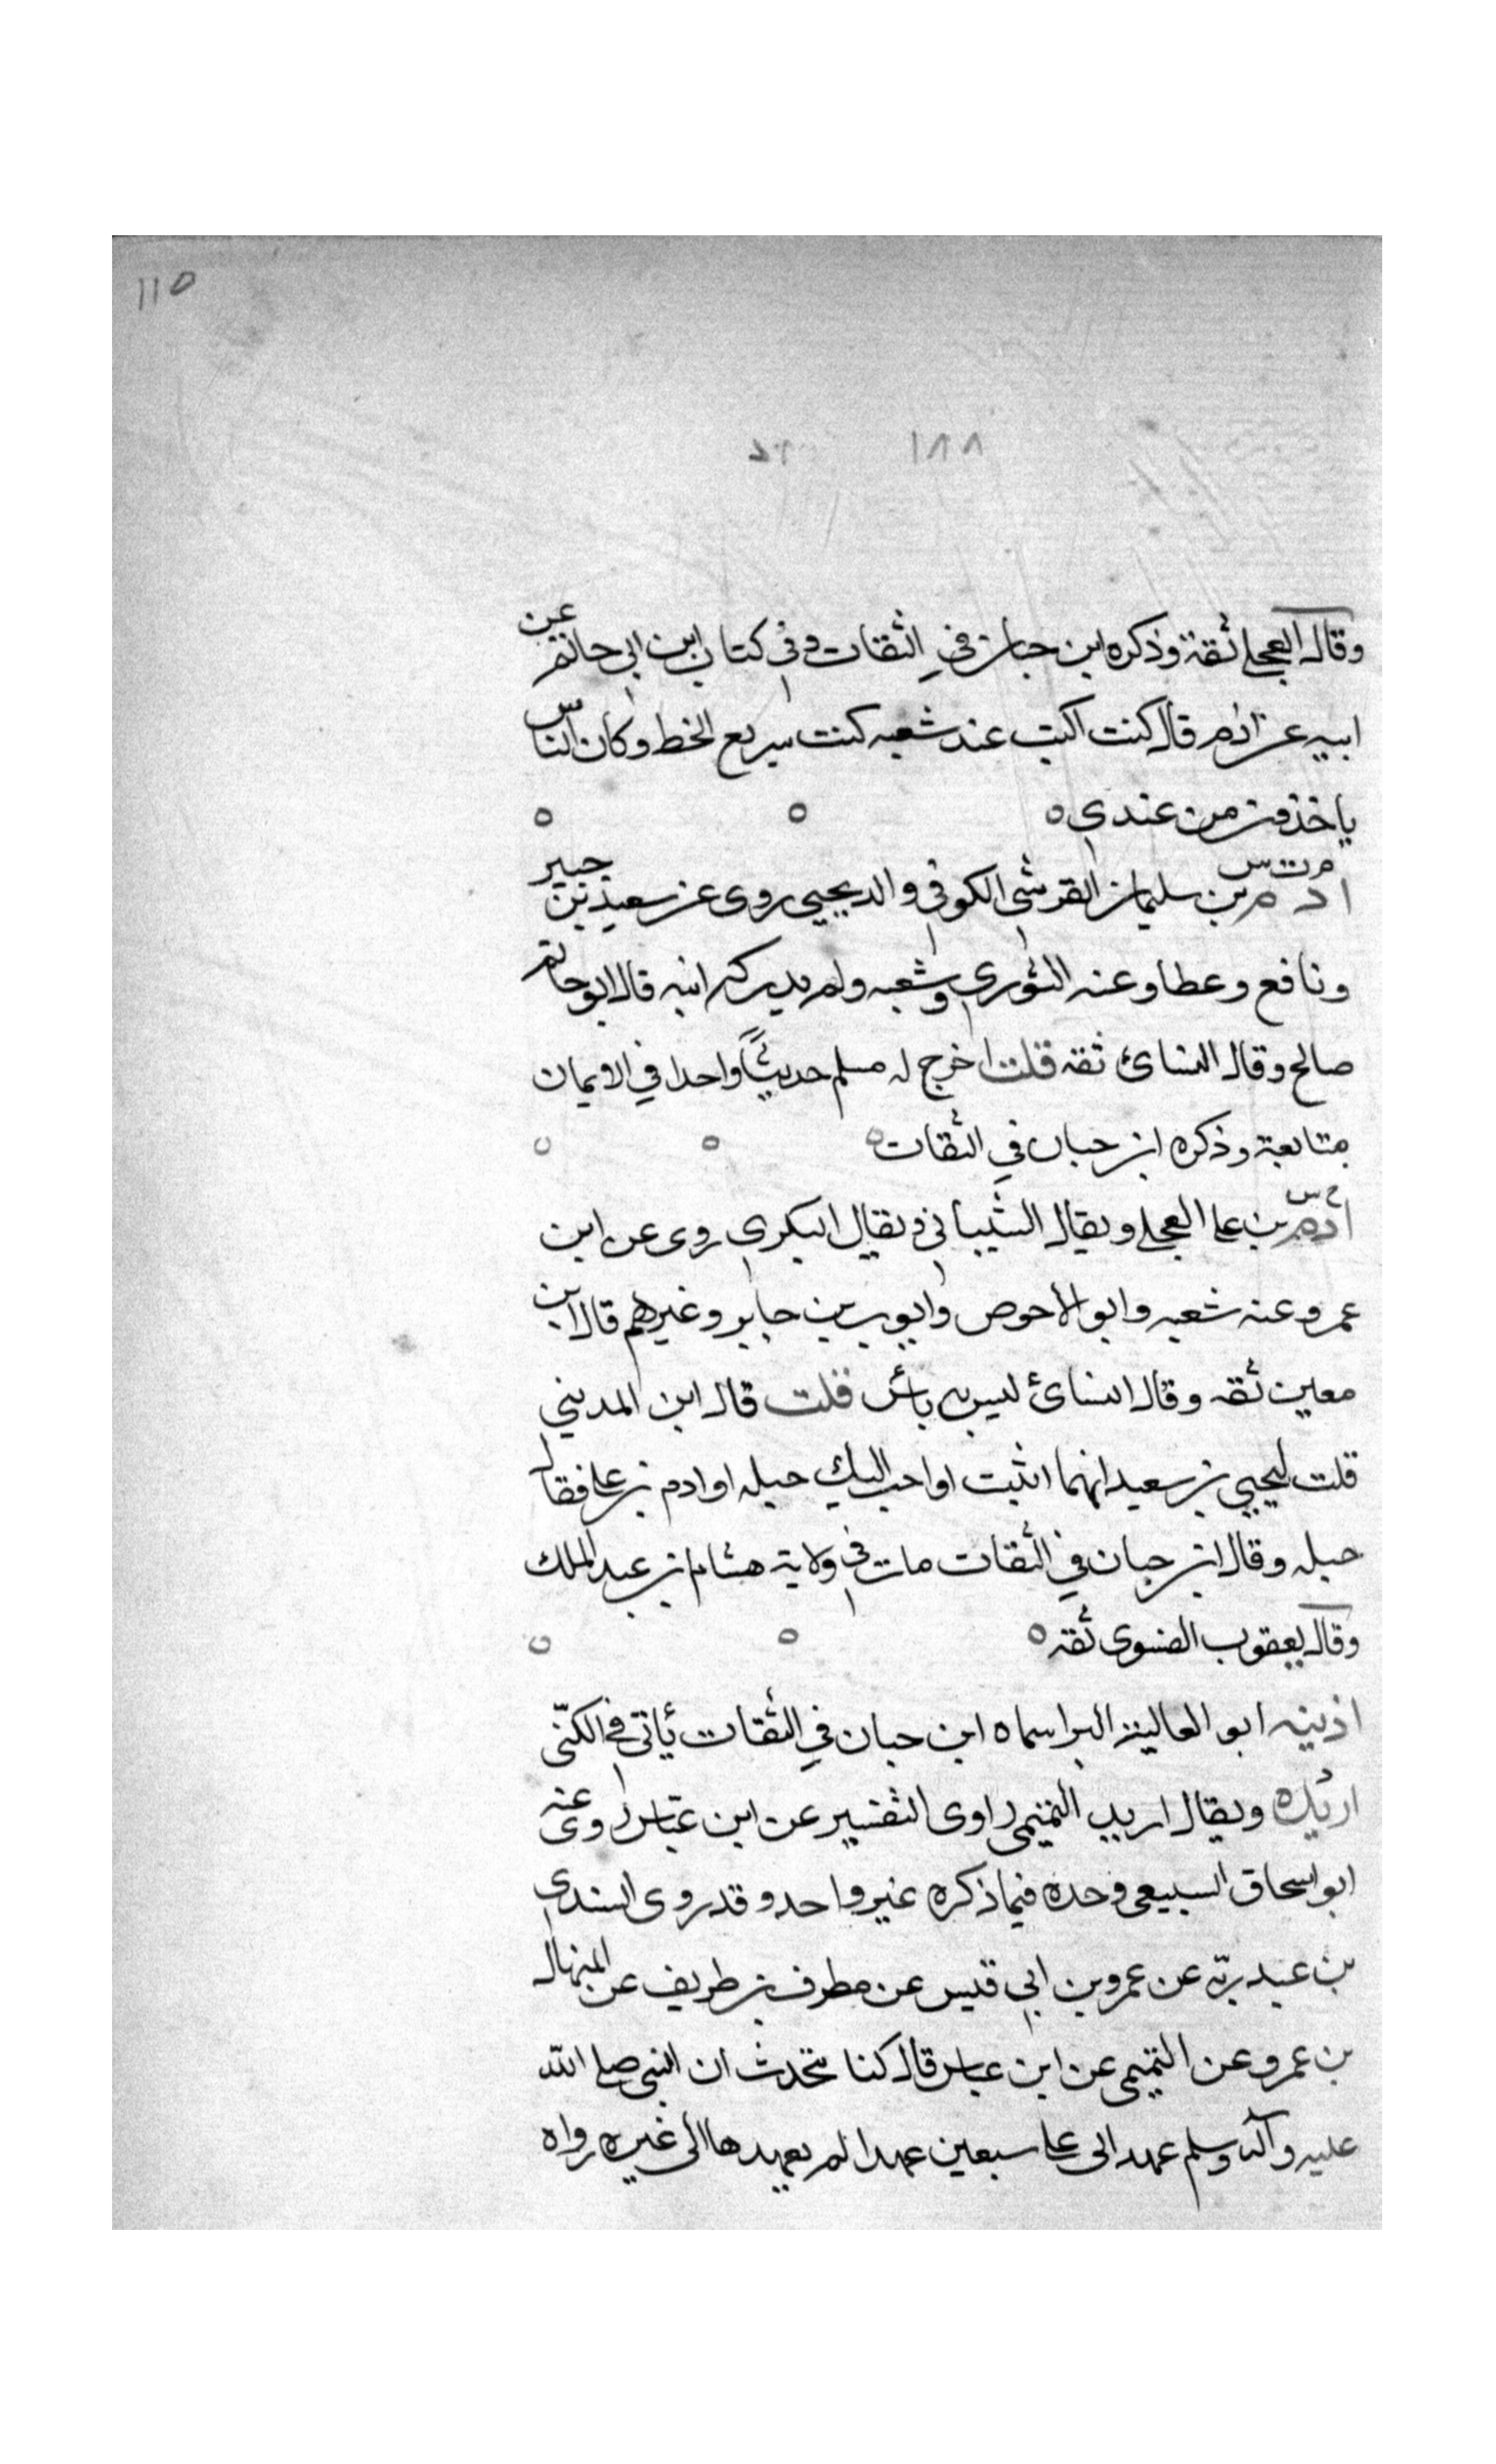 ١١٥
١٨٨
وقال العجلي ثقة وذكره ابن حبان في الثقات وفي كتاب ابن ابي حاتم عن
ابيه عن ادم قال كنت اكتب عند شعبه كنت سريع الخط وكان الناس
ياخذون من عندي ه ه ه
م ت س
ادم بن سليمان القرشي الكوفي والد يحيي روى عن سعيد بن جبير
ونافع وعطا وعنه الثوري وشعبه ولم يدركه ابنه قال ابو حاتم
صالح وقال النسائ ثقه قلت اخرج له مسلم حديثًا واحدا في الايمان
متابعة وذكره ابن حبان في الثقات ه ه ه
خ س
ادم بن علي العجلي ويقال الشيباني ويقال البكري روى عن ابن
عمر وعنه شعبه وابو الاحوص وايوب بن جابر وغيرهم قال ابن
معين ثقه وقال النسائ ليس به بأس قلت قال ابن المديني
قلت ليحيي بن سعيد انهما اثبت او احب اليك جبله او ادم بن علي فقال
جبله وقال ابن حبان في الثقات مات في ولاية هشام بن عبد الملك
وقال يعقوب الفسوى ثقه ه ه ه
اذينه ابو العالية البرا سماه ابن حبان في الثقات يأتى في الكنّى
اربده ويقال اربد التميمى راوى التفسير عن ابن عبّاس روى عنه
ابو اسحاق السبيعي وحده فيما ذكره غير واحد وقد روى السندي
بن عبد ربّه عن عمرو بن ابي قيس عن مطرف بن طريف عن المنهال
بن عمرو عن التميمى عن ابن عباس قال كنا نتحدث ان النبي صلى الله
عليه وآله وسلم عهد الى علي سبعين عهدا لم يعهدها الى غيره رواه